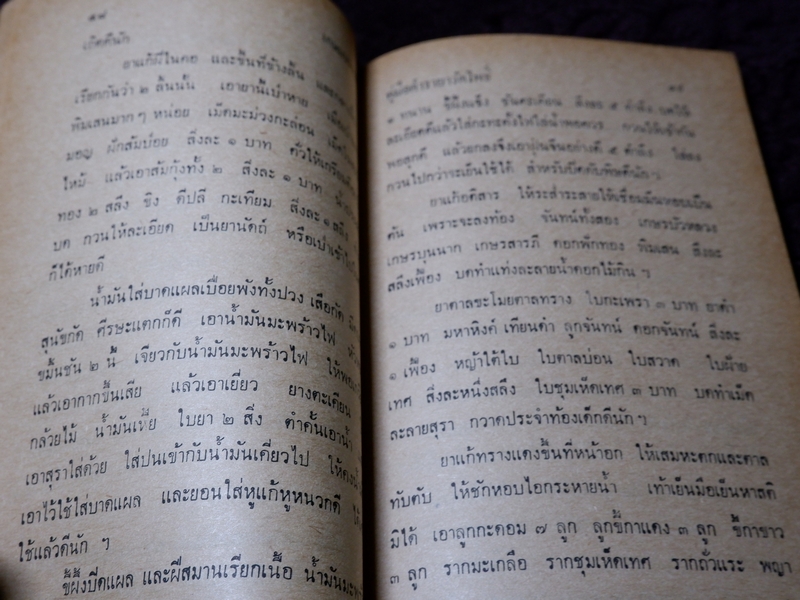 ๕๘
เกิดดีนัก
ยาแก้ฝีในคอ และขึ้นที่ข้างลิ้น
เรียกกันว่า ๒ ลิ้นนั้น เอายานี้เป่าหาย
พิมเสนมาก ๆ หน่อย เม็ดมะม่วงกะล่อน
มอญ ผักส้มป่อย สิ่งละ ๑ บาท คั่วให้เกรียม
ไหม้ แล้วเอาส้มกุ้งทั้ง ๒ สิ่งละ ๑ บาท
ทอง ๒ สลึง ขิง ดีปลี กะเทียม สิ่งละ ๑ สลึง
บด กวนให้ละเอียด เป็นยานัตถ์ หรือเป่าเข้าไป
ก็ได้หายดี
น้ำมันใส่บาดแผลเปื่อยพังทั้งปวง เสือกัด
สุนัขกัด ศีรษะแตกก็ดี เอาน้ำมันมะพร้าวไฟ
ขมิ้นชัน ๒ นี้ เจียวกับน้ำมันมะพร้าวไฟ
แล้วเอากากขึ้นเสีย แล้วเอาเยี่ยว ยางตะเคียน
กล้วยไม้ น้ำมันเหี้ย ใบยา ๒ สิ่ง ตำคั้นเอาน้ำ
เอาสุราใส่ด้วย ใส่ปนเข้ากับน้ำมันเคี่ยวไป
เอาไว้ใช้ใส่บาดแผล และยอนใส่หูแก้หูหนวกก็ดี
ใช้แล้วดีนัก ๆ
ขี้ผึ้งปิดแผล และผีสมานเรียกเนื้อ น้ำมันมะ
๑ ทนาน ขี้ผึ้งแข็ง ชันตะเคียน สิ่งละ ๕ ตำลึง
ละเอียดดีแล้วใส่กะทะตั้งไฟใส่น้ำพอควร กวนให้เข้ากัน
พอสุกดี แล้วยกลงจึงเอาฝุ่นจีนอย่างดี ๕ ตำลึง ใส่ลง
กวนไปกว่าจะเย็นใช้ได้ สำหรับปิดดับพิษดีนัก ๆ
ยาแก้อติสาร ให้ระส่ำระสายให้เชื่อมมึนหอบเย็น
ดัน เพราะจะลงท้อง จันทน์ทั้งสอง เกษรบัวหลวง
เกษรบุนนาก เกษรสารภี ดอกพักทอง พิมเสน สิ่งละ
สลึงเฟื้อง บดทำแท่งละลายน้ำดอกไม้กิน ๆ
ยาตาลขะโมยตาลทราง ใบกะเพรา ๓ บาท ยาดำ
๑ บาท มหาหิงค์ เทียนดำ ลูกจันทน์ ดอกจันทน์ สิ่งละ
๑ เฟื้อง หญ้าใต้ใบ ใบตาลบ่อน ใบสวาด ใบฝ้าย
เทศ สิ่งละหนึ่งสลึง ใบชุมเห็ดเทศ ๓ บาท บดทำเม็ด
ละลายสุรา กวาดประจำท้องเด็กดีนัก ๆ
ยาแก้ทรางแดงขึ้นที่หน้าอก ให้เสมหะตกและตาล
ทับตับ ให้ชักหอบไอกระหายน้ำ เท้าเย็นมือเย็นหาสติ
มิได้ เอาลูกกะดอม ๗ ลูก ลูกขี้กาแดง ๓ ลูก ขี้กาขาว
๓ ลูก รากมะเกลือ รากชุมเห็ดเทศ รากถั่วแระ พญา